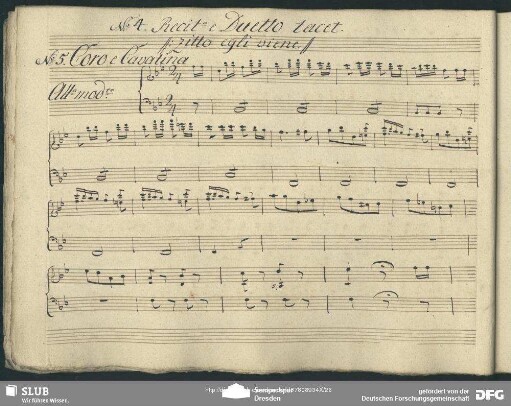 No. 4. Recit.e e Duetto tacet.
ritto egli viene
No. 5. Coro e Cavatina
All.o mod.to
SLUB
Wir führen Wissen.
Dresden
gefördert von der
Deutschen Forschungsgemeinschaft
DFG